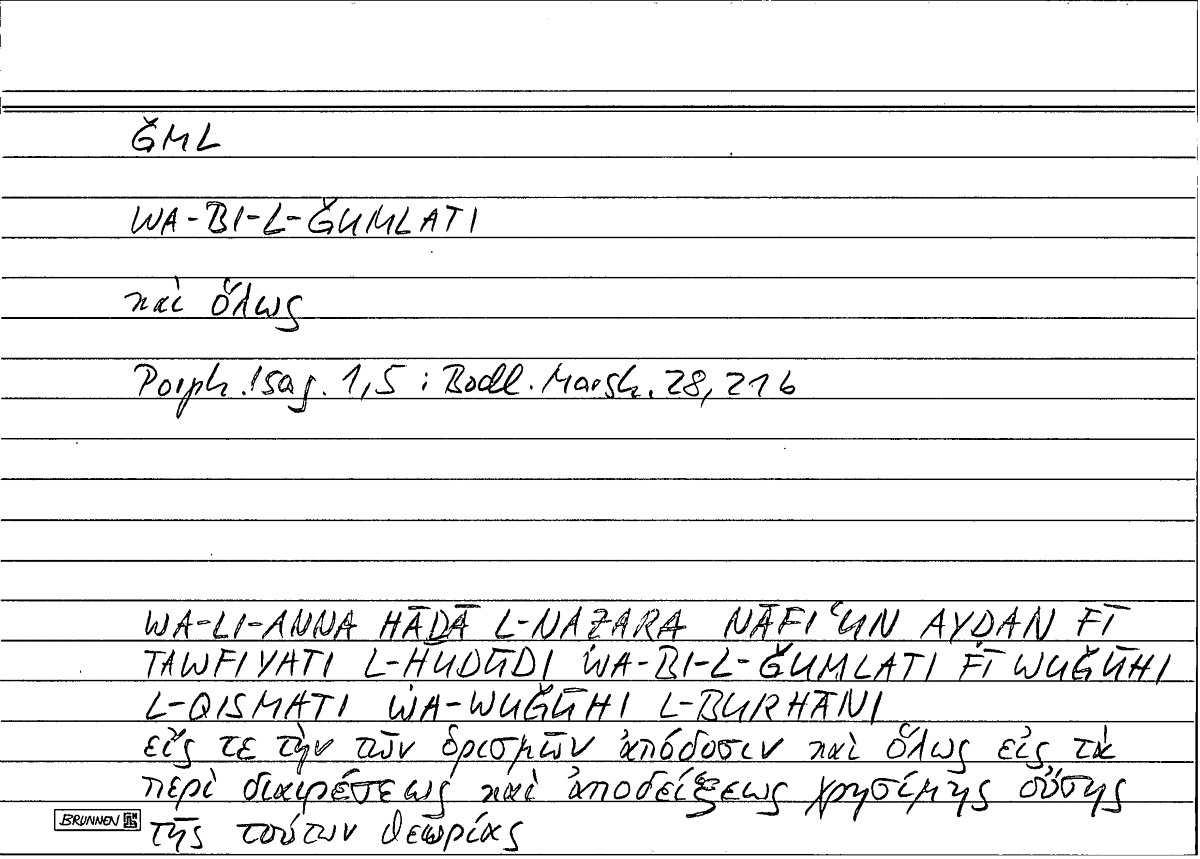 ǦML
WA-BI-L-ǦUMLATI
καὶ ὅλως
Porph. Isag. 1,5 : Bodl. Marsh. 28, 216
WA-LI-ANNA HĀḎĀ L-NAẒARA NĀFIʿUN AYḌAN FĪ
TAWFIYATI L-ḤUDŪDI WA-BI-L-ǦUMLATI FĪ WUǦŪHI
L-QISMATI WA-WUǦŪHI L-BURHĀNI
εἴς τε τὴν τῶν ὁρισμῶν ἀπόδοσιν καὶ ὅλως εἰς τὰ
περὶ διαιρέσεως καὶ ἀποδείξεως χρησίμης οὔσης
τῆς τούτων θεωρίας
BRUNNEN